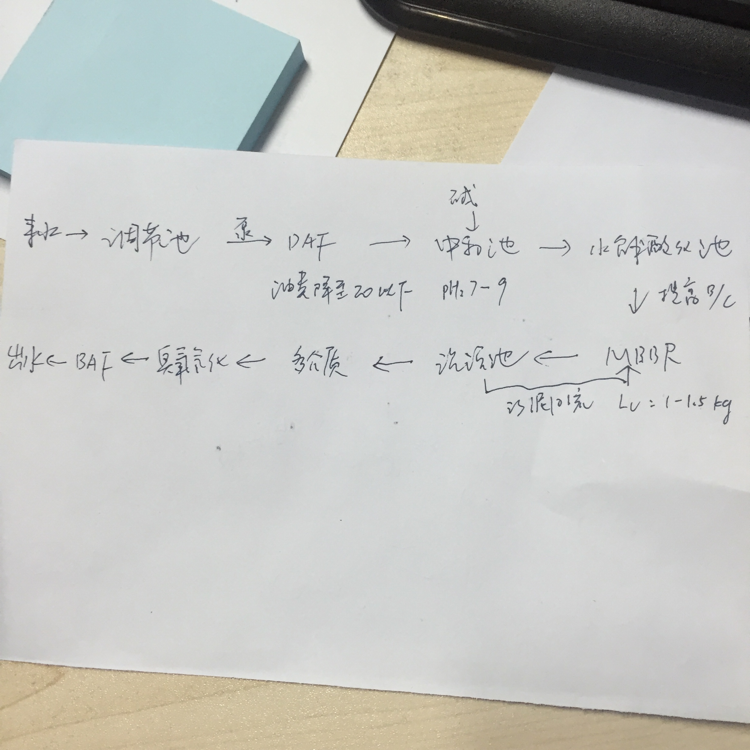 碱
↓
来水 → 调节池 泵→ DAF → 中和池 → 水解酸化池
油类降至20以下 pH:7-9 ↓ 提高B/C
出水 ← BAF ← 臭氧氧化 ← 多介质 ← 沉淀池 ← MBBR
污泥回流 Lv = 1-1.5kg